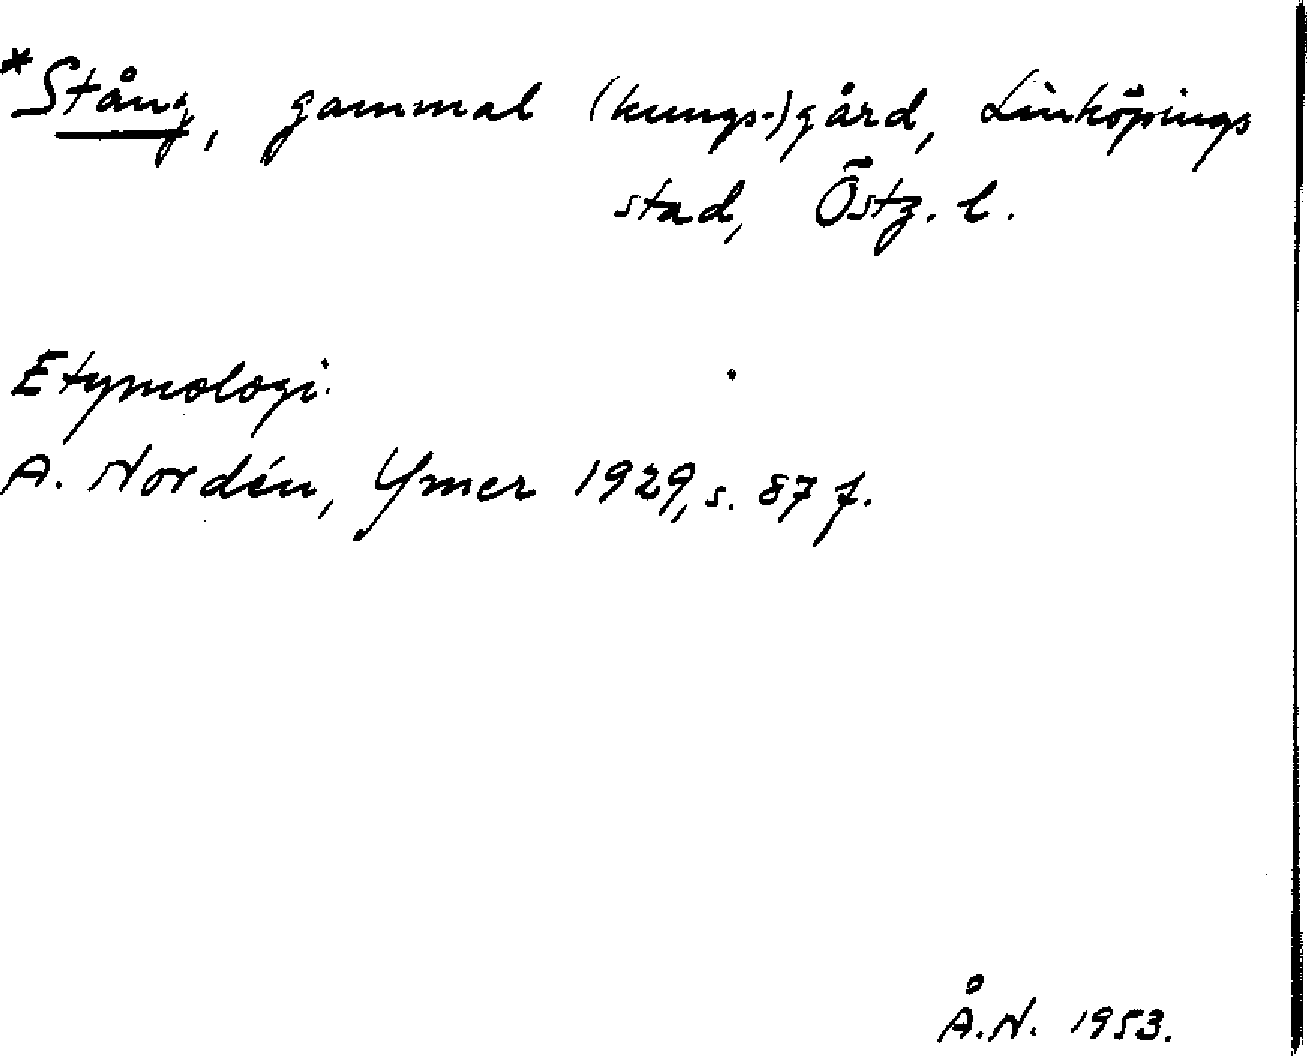 *Stång, gammal (kungs-)gård, Linköpings
stad, Östg. l.
Etymologi.
A. Nordén, Ymer 1929, s. 87 f.
Å.N. 1953.